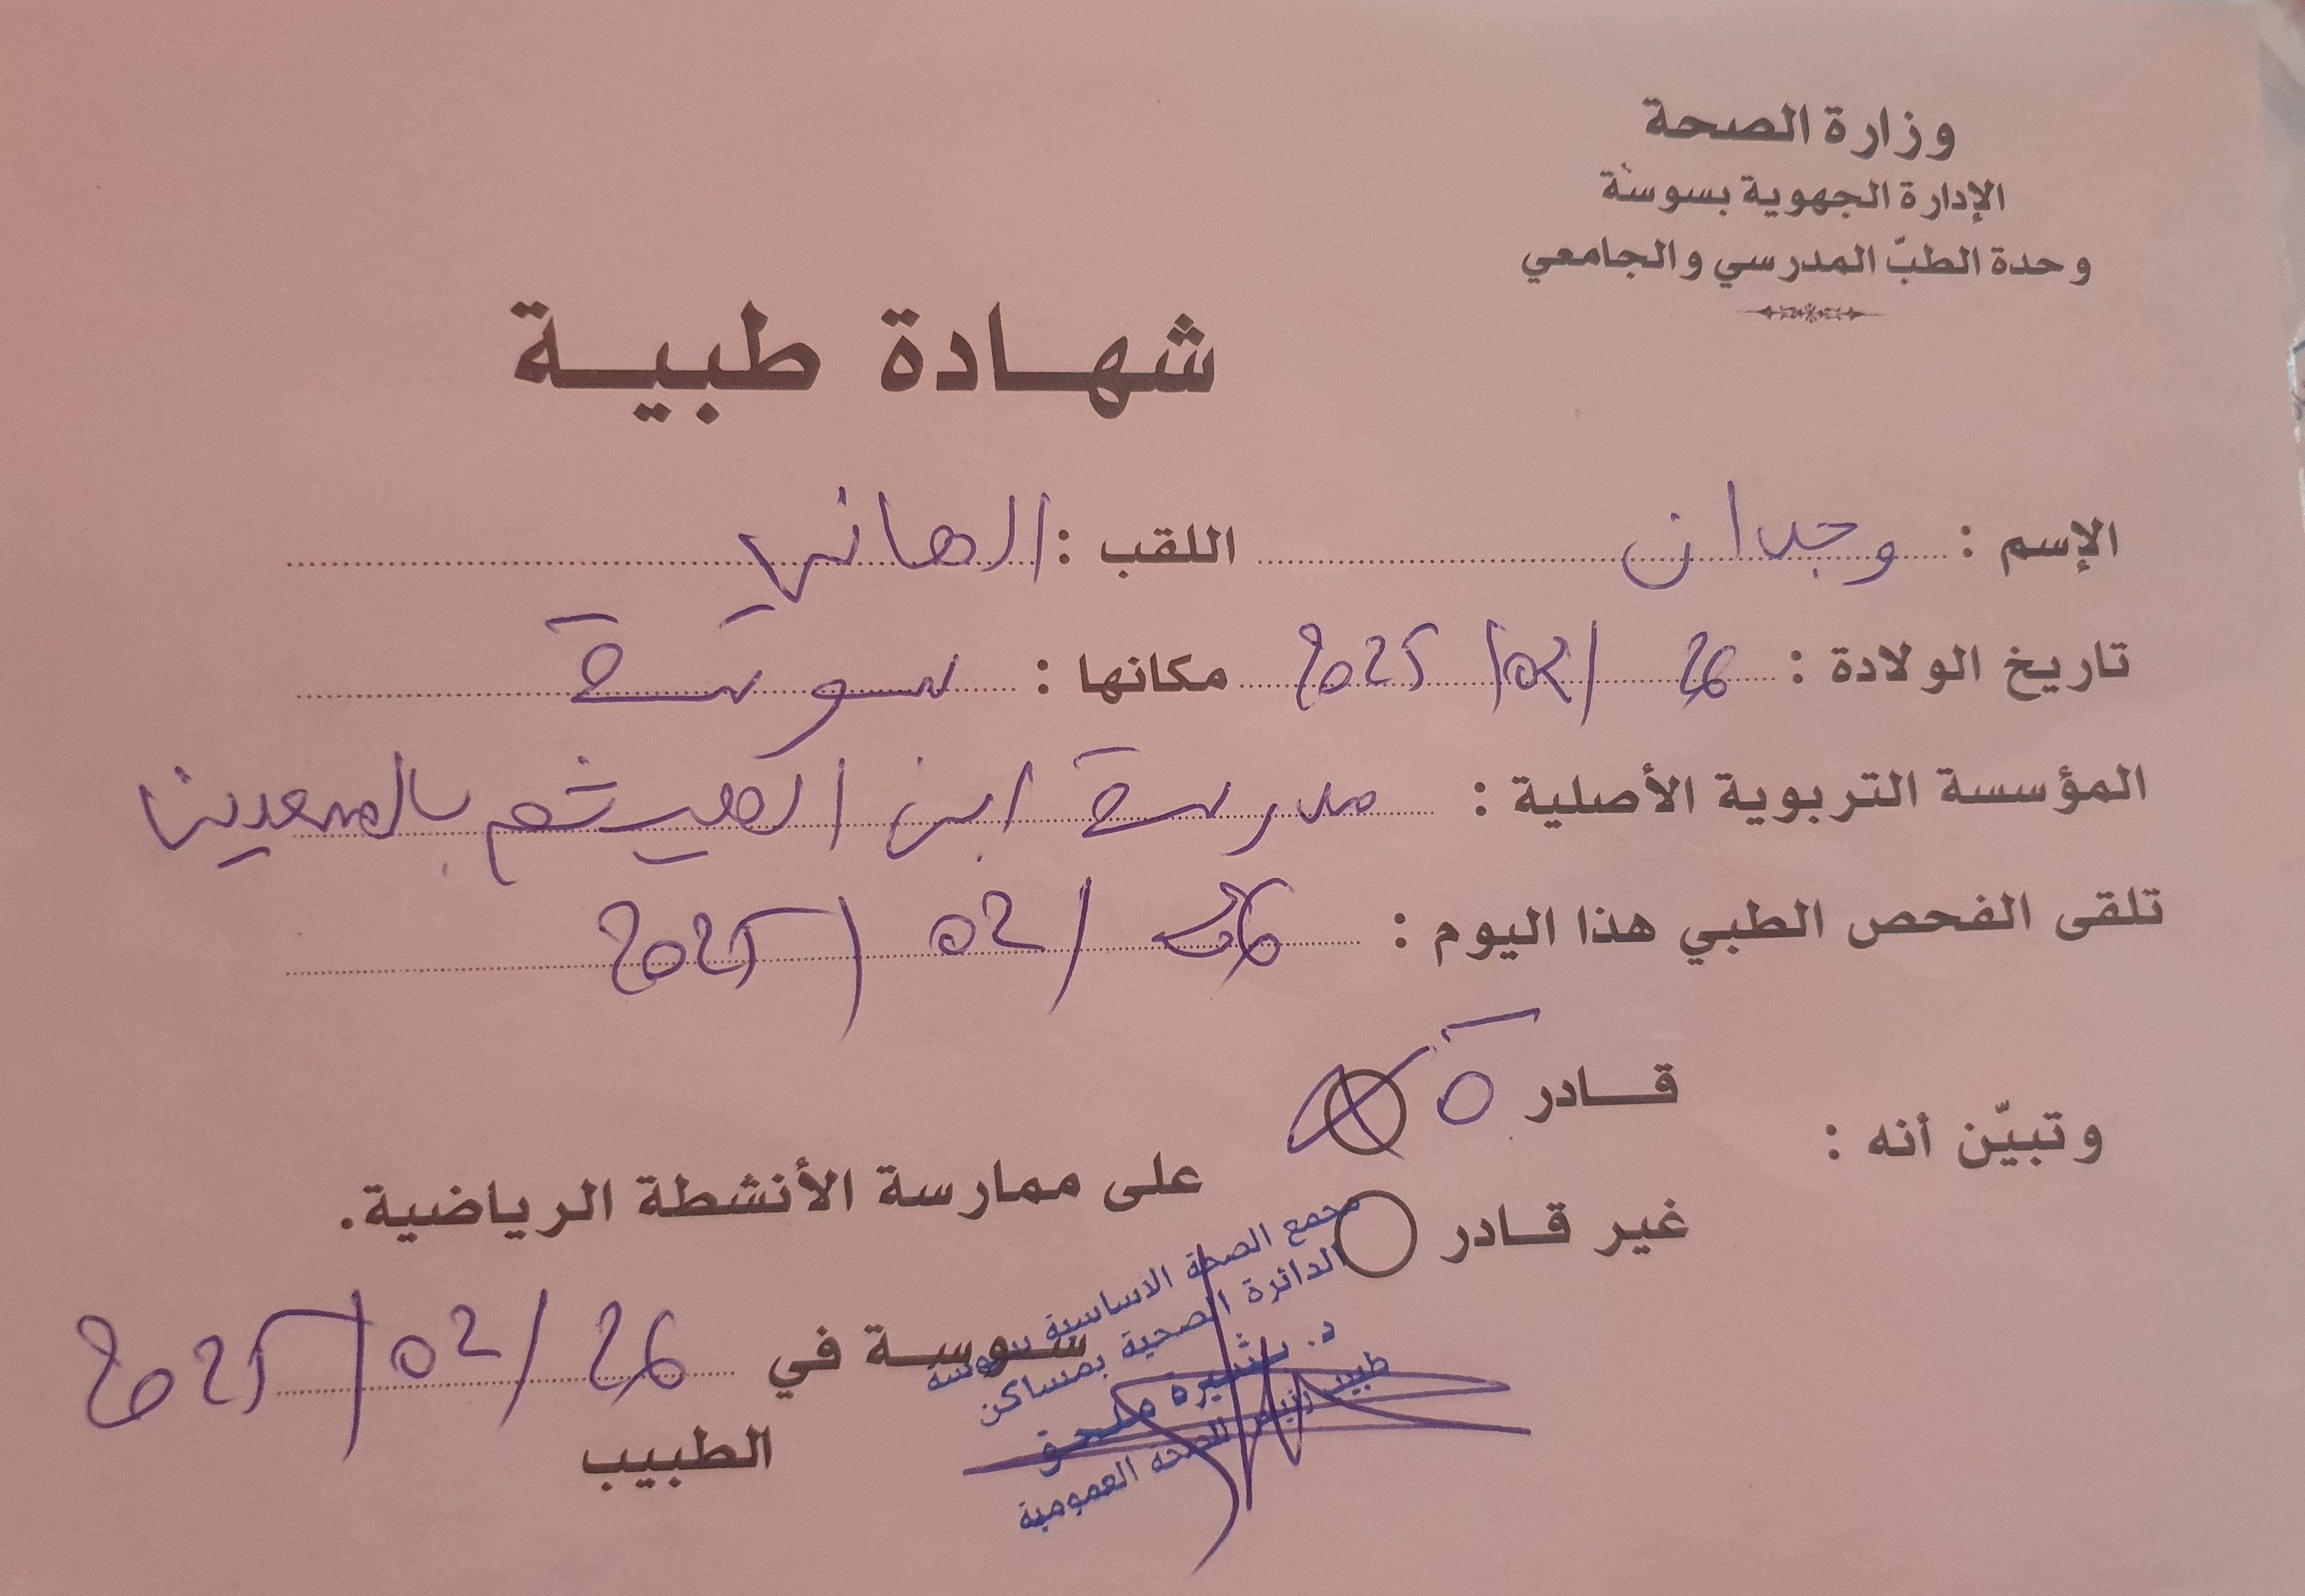 وزارة الصحة
الإدارة الجهوية بسوسة
وحدة الطبّ المدرسي والجامعي
شهادة طبية
الإسم : وجدان اللقب : الهاني
تاريخ الولادة : 26 / 02 / 2025 مكانها : سوسة
المؤسسة التربوية الأصلية : مدرسة ابن الهيثم بالسعدين
تلقى الفحص الطبي هذا اليوم : 26 / 02 / 2025
قادر ة
وتبيّن أنه :
على ممارسة الأنشطة الرياضية.
غير قادر
مجمع الصحة الاساسية بسوسة
الدائرة الصحية بمساكن
سوسة في 26 / 02 / 2025
د.
طبيب رئيس للصحة العمومية
الطبيب